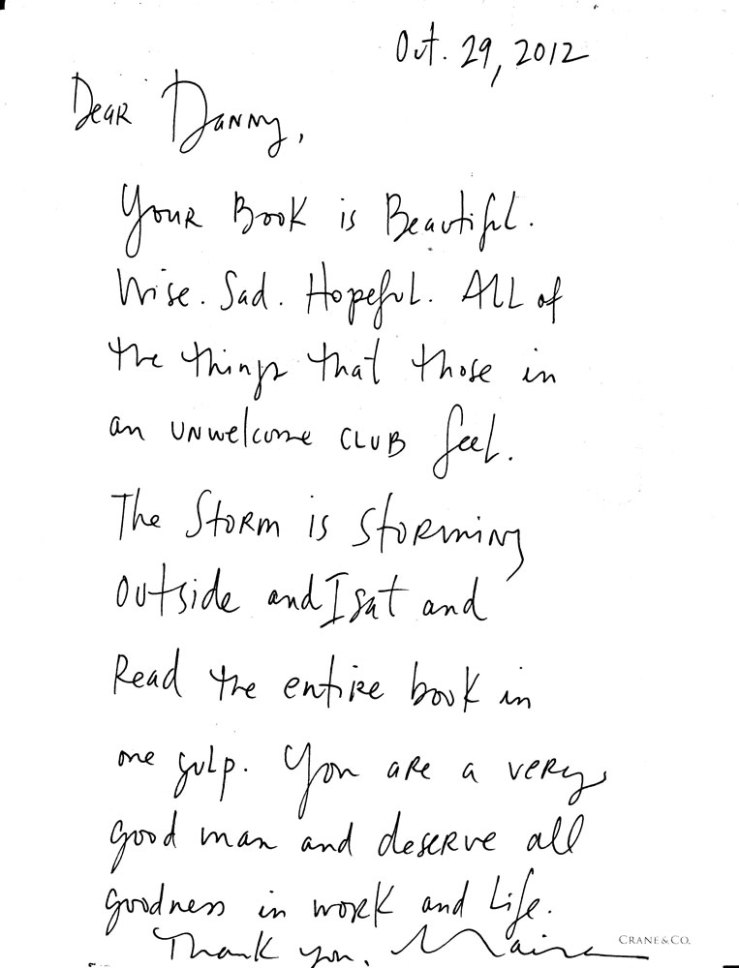 Oct. 29, 2012
Dear Danny,
Your Book is Beautiful.
Wise. Sad. Hopeful. ALL of
the things that those in
an unwelcome CLUB feel.
The Storm is storming
outside and I sat and
Read the entire book in
one gulp. You are a very
good man and deserve all
goodness in work and Life.
Thank you. Maira
CRANE & CO.